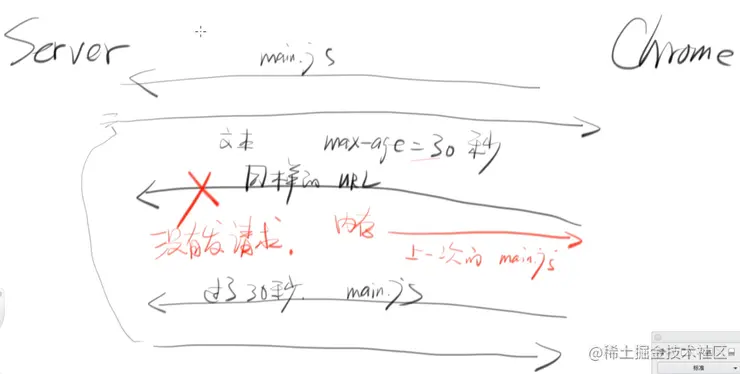 Server
Chrome
main.js
文本 max-age=30秒
同样的 URL
没有发请求. 内存
上一次的 main.js
过了30秒. main.js
@稀土掘金技术社区
标准